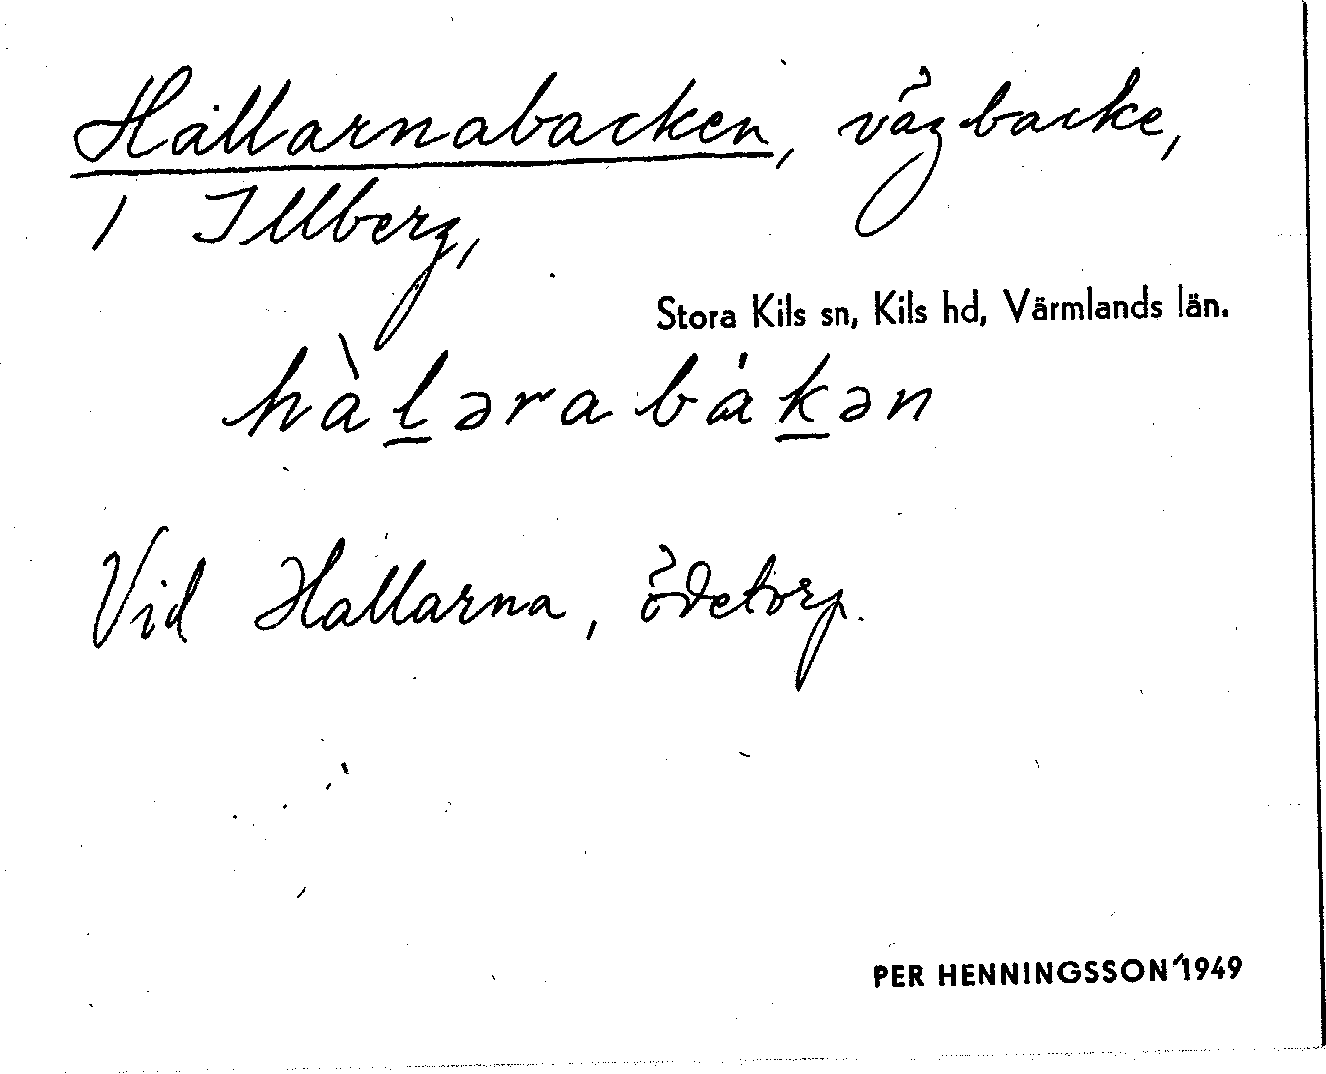 Hallarnabacken, vägbacke,
i Illberg,
Stora Kils sn, Kils hd, Värmlands län.
hàl̲ərabák̲ən
Vid Hallarna, ödetorp.
PER HENNINGSSON 1949